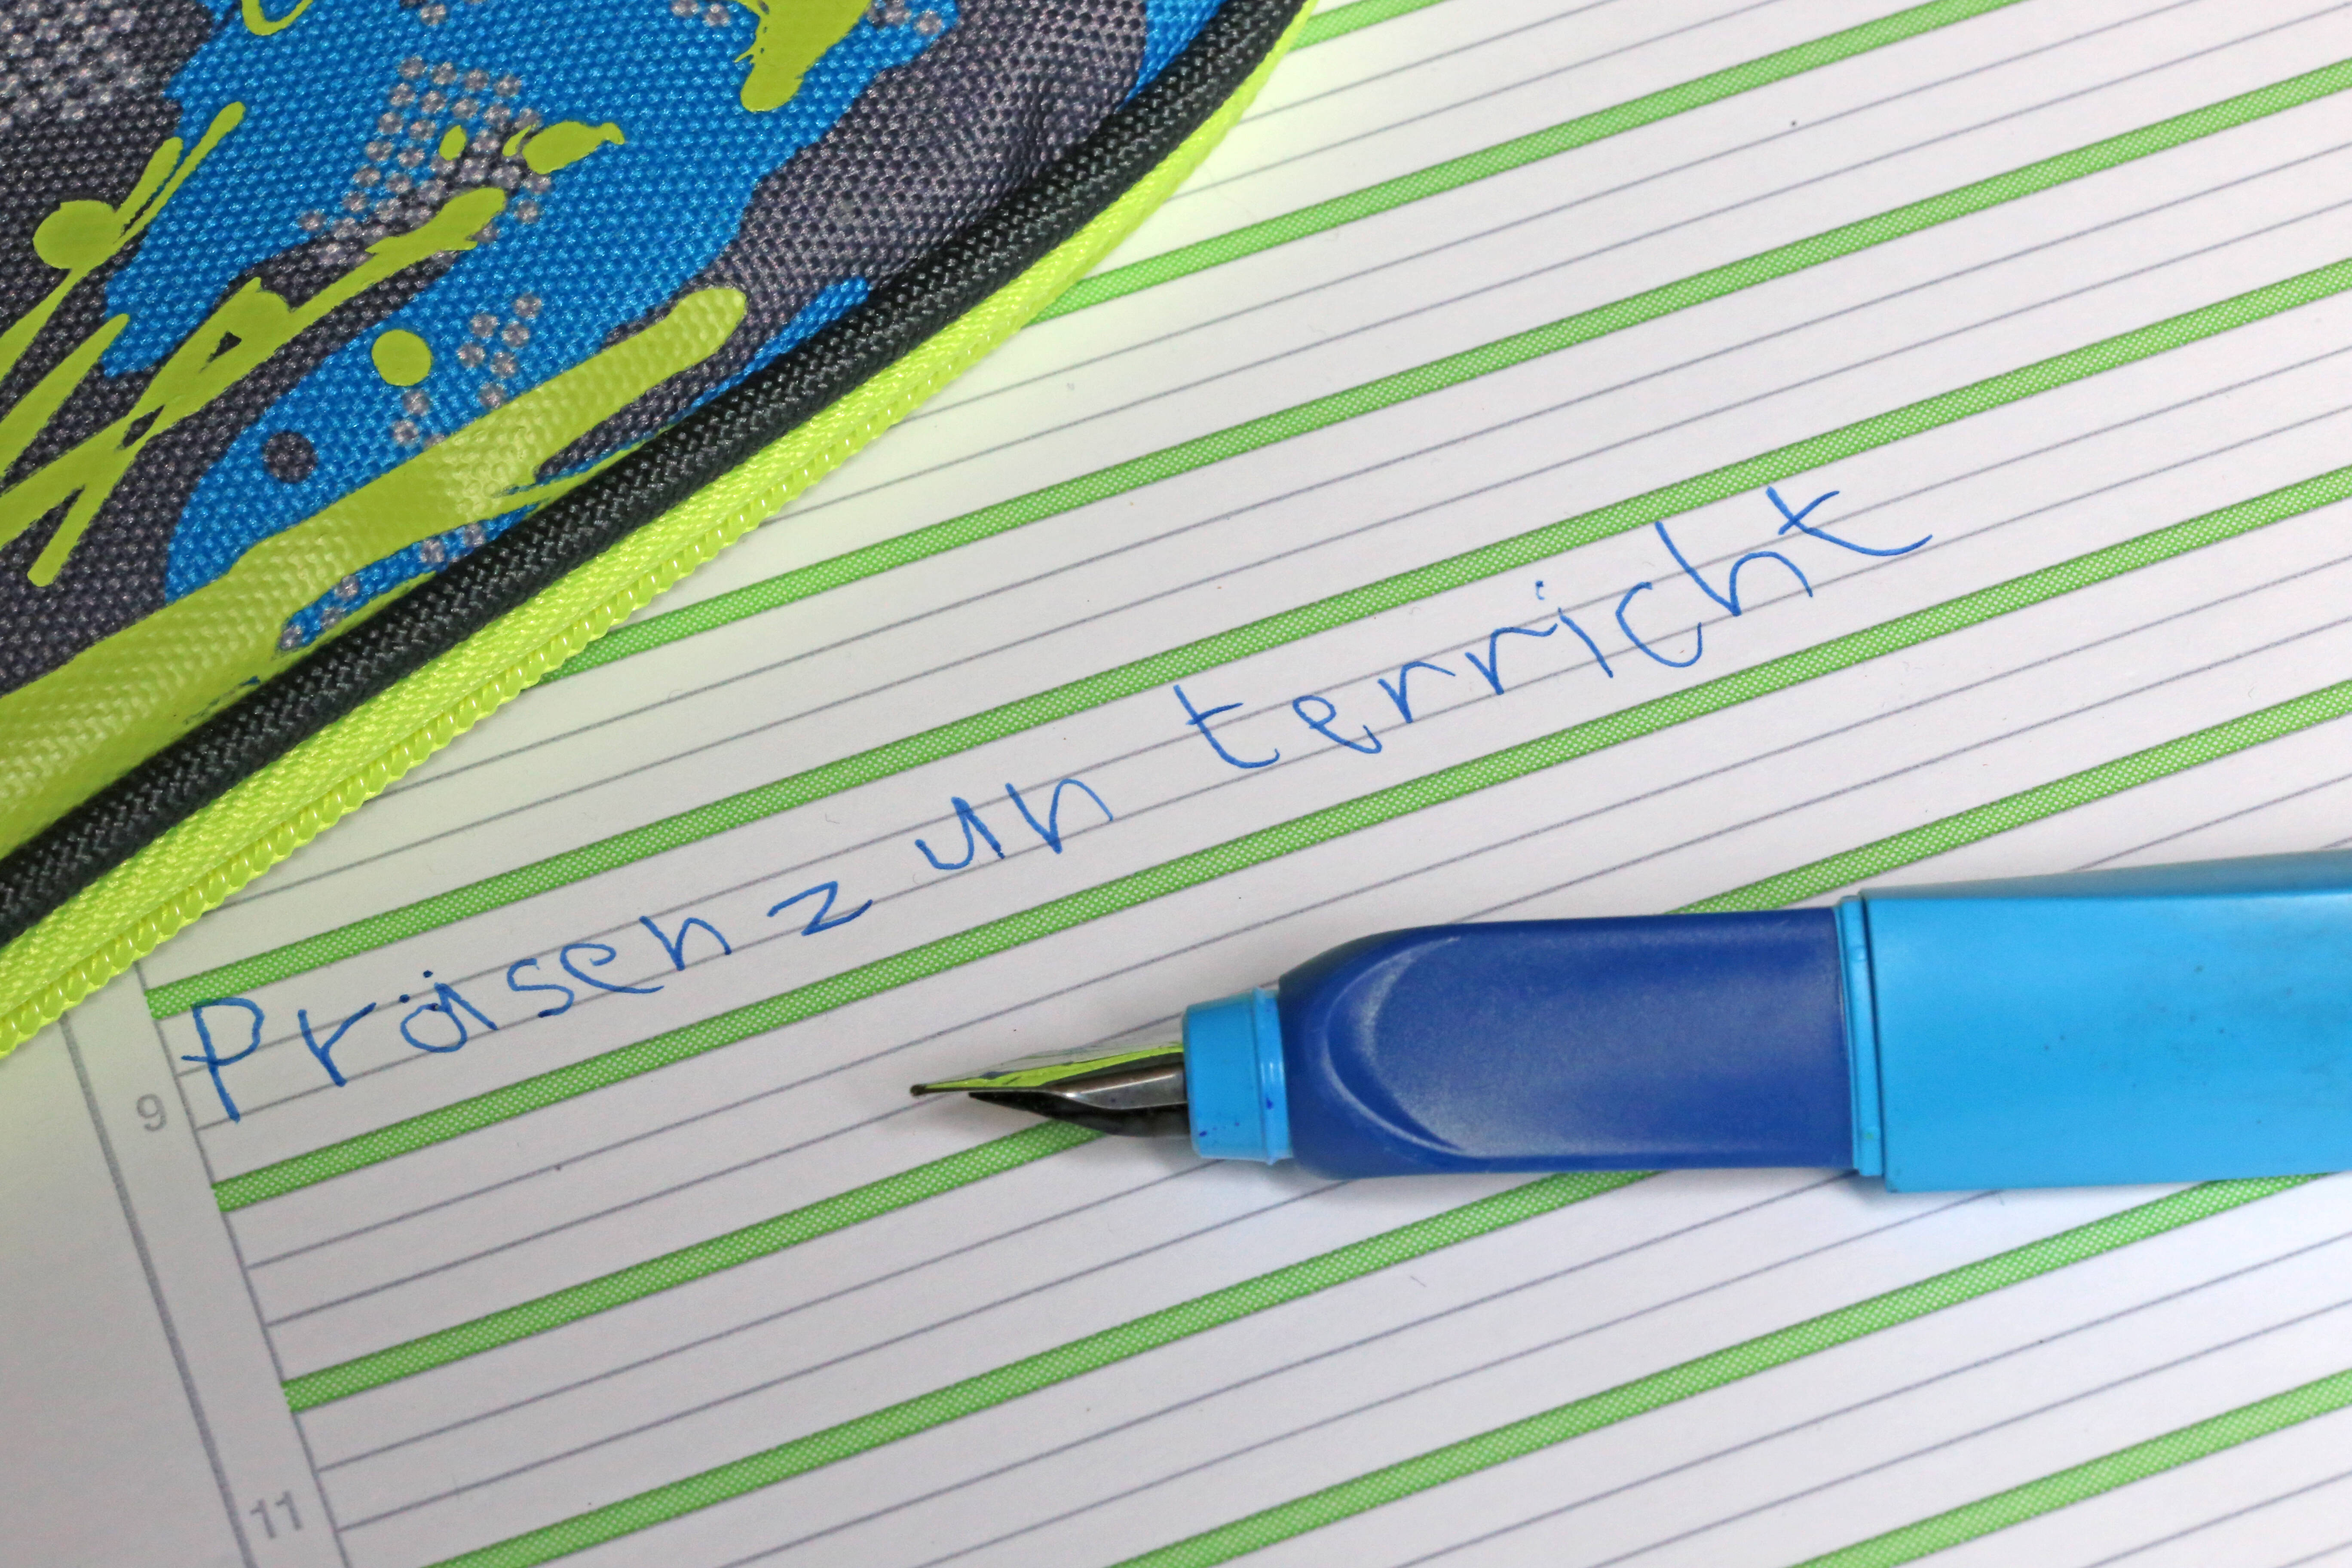 Präsenz un terricht
9
11